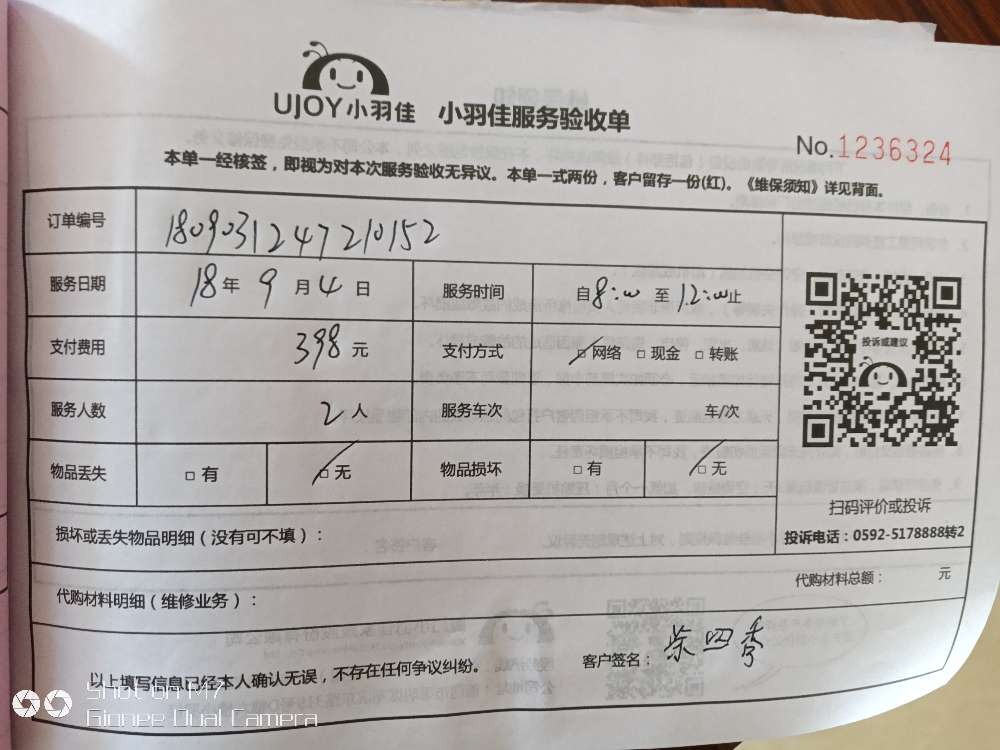 UJOY小羽佳 小羽佳服务验收单
No.1236324
本单一经核签，即视为对本次服务验收无异议。本单一式两份，客户留存一份(红)。《维保须知》详见背面。
订单编号 1809031247210152
服务日期 18年 9 月 4 日 服务时间 自8:00 至 12:00止
支付费用 398 元 支付方式 □网络 □现金 □转账
投诉或建议
服务人数 2人 服务车次 车/次
物品丢失 □有 □无 物品损坏 □有 □无
扫码评价或投诉
损坏或丢失物品明细（没有可不填）：
投诉电话：0592-5178888转2
代购材料总额： 元
代购材料明细（维修业务）：
以上填写信息已经本人确认无误，不存在任何争议纠纷。 客户签名：柴四秀
Shot on M7
Gionee Dual Camera